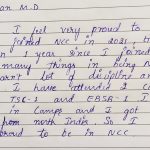 an M.D
I feel very proud to
joined NCC in 2021, th
n 1 year since I joined
many things in being N
arnt lot of discipline an
I have attended 2 ca
TSC-1 and EBSB-1 I
in Camps and I got
from north India. So I
proud to be in NCC